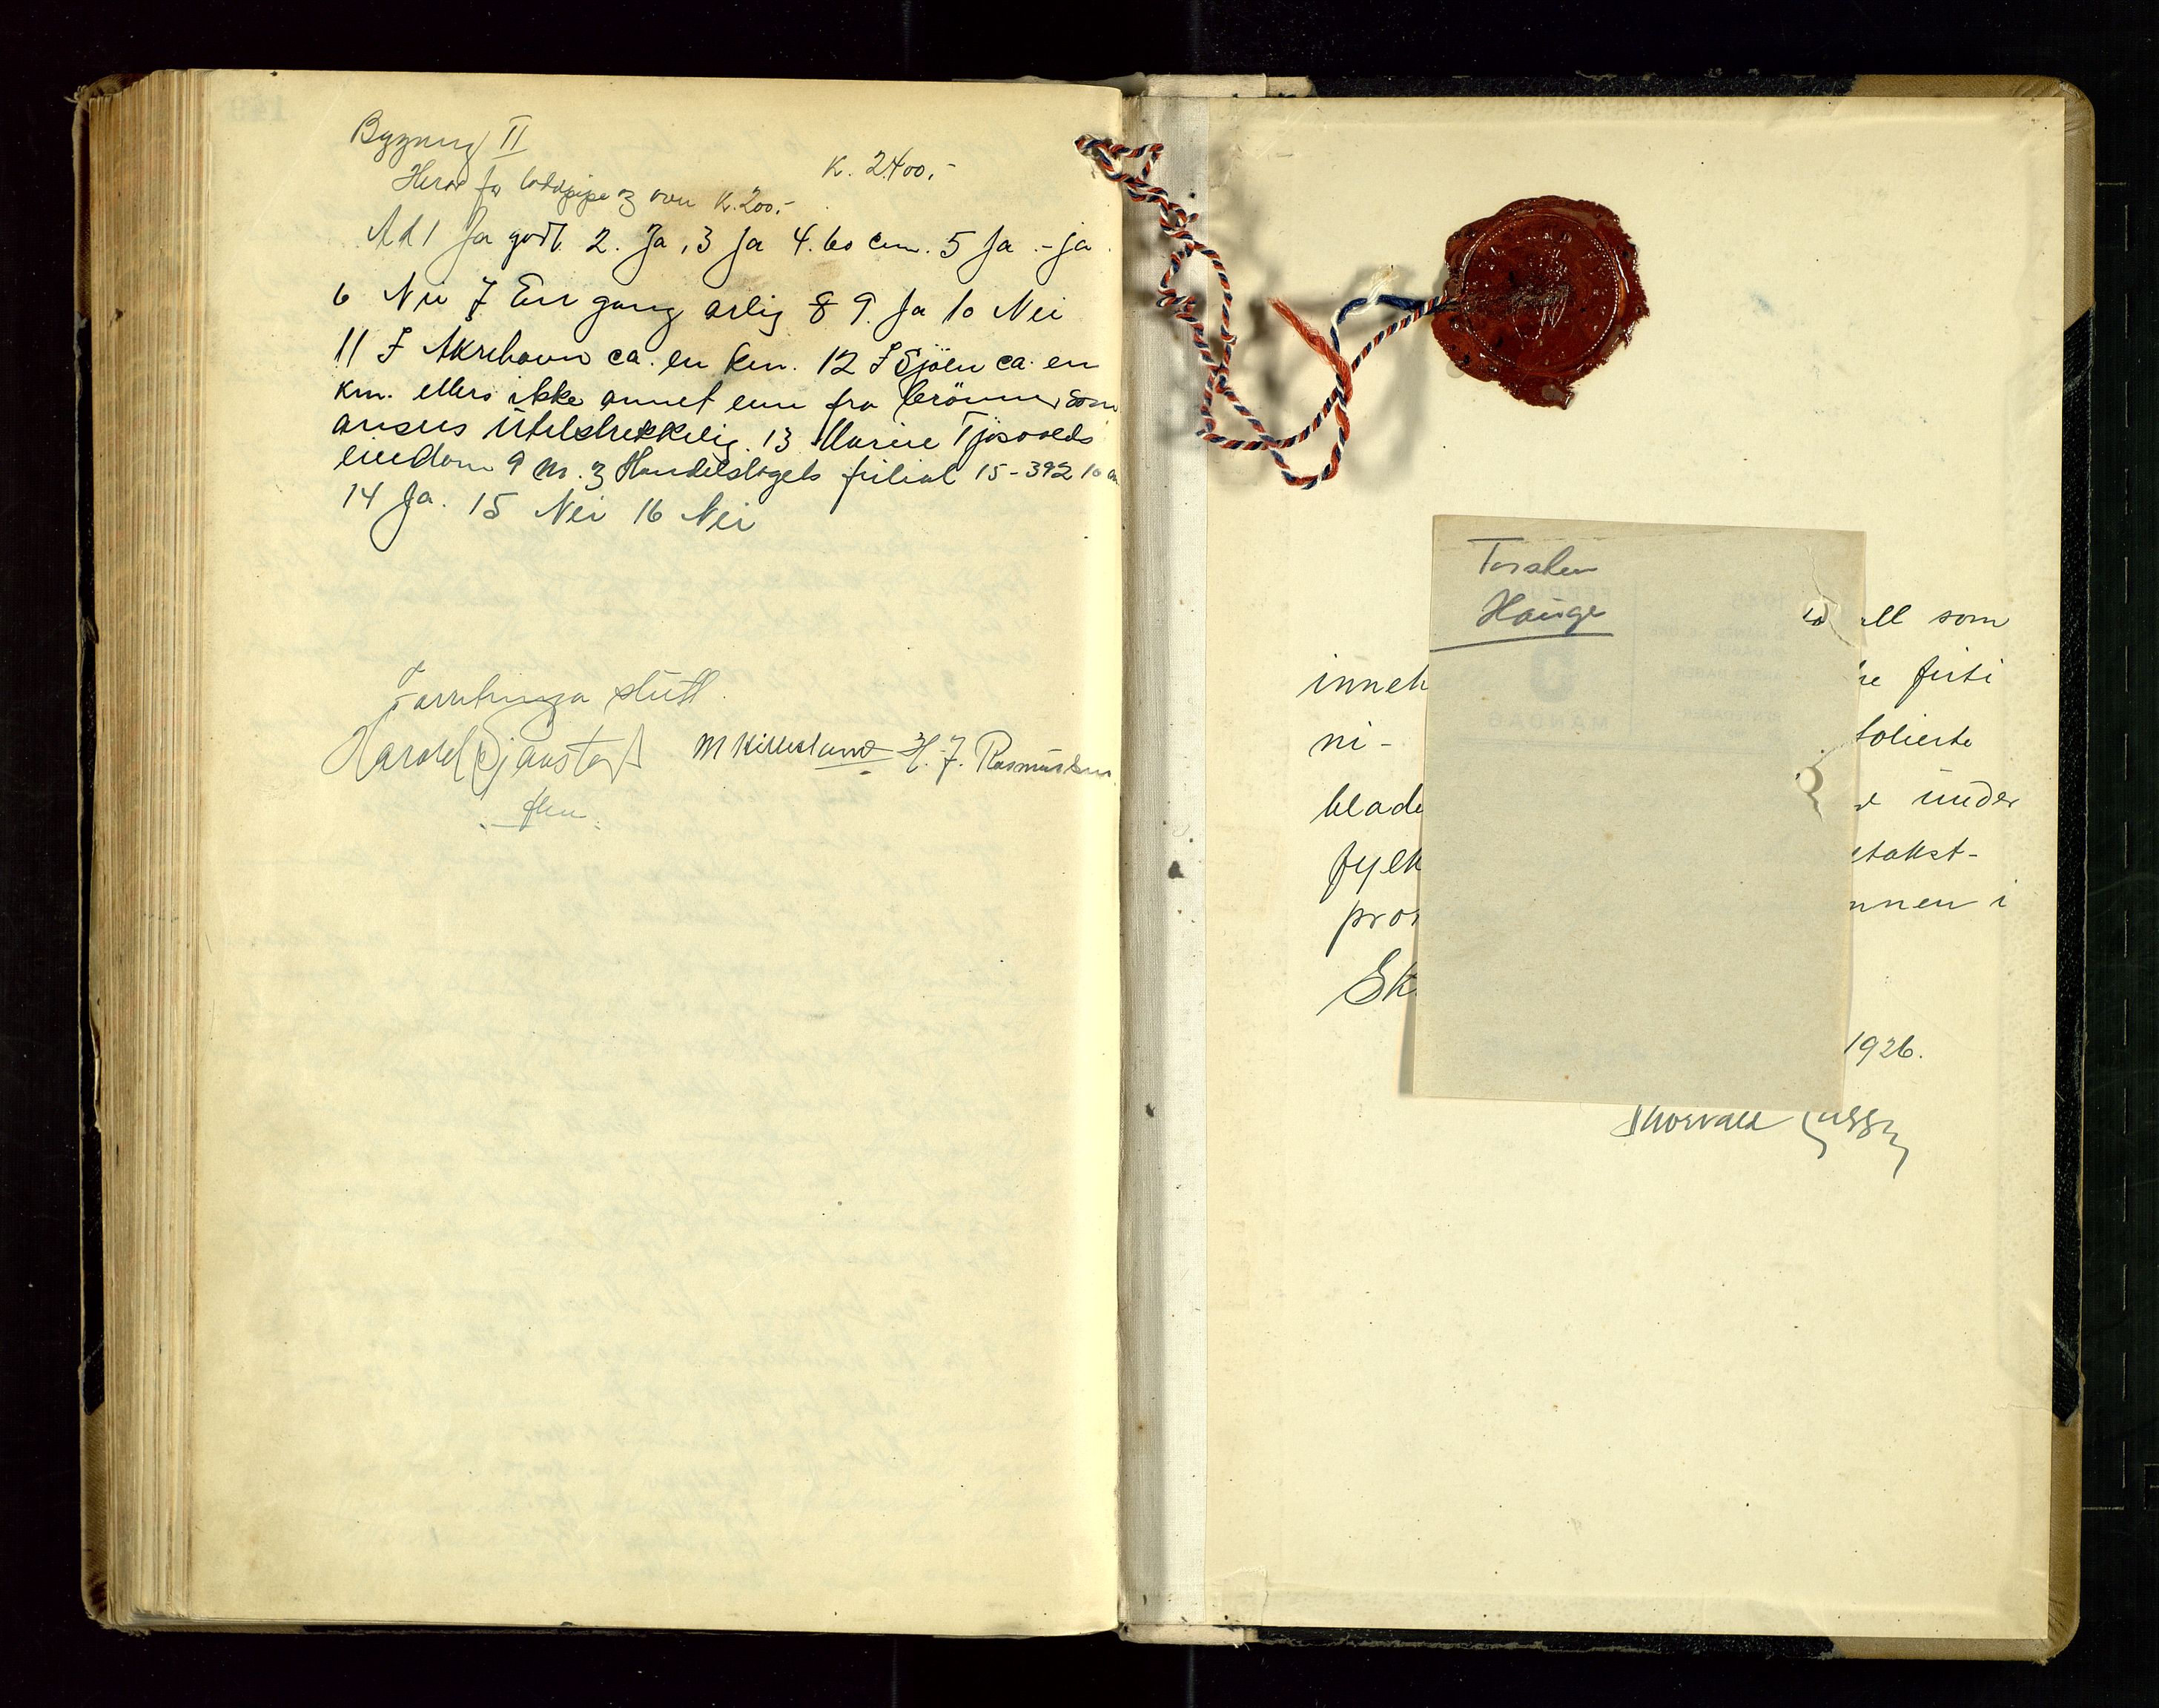 Bygning II
K. 2400.-
Herav for loddpipe og ovn K. 200.-
Ad 1 Ja godt 2. Ja, 3 Ja 4. 60 cm. 5 Ja - ja
6 Nei 7 En gang arlig 8 9. Ja 10 Nei
11 I Akrehavn ca. en km. 12 I Sjöen ca. en
km. ellers ikke annet enn fra brönner som
ansees utilstrekkelig. 13 Marie Tjösvolds
eiendom 9 m. og Handelslagets filial 15-392 10 m
14 Ja. 15 Nei 16 Nei
Forretninga slutt.
M Killesland H. J. Rasmussen
Torsten
Hauge
all som
inneh
firti
ni-
folierte
blade
under
fylk
takst-
pro
nnen i
Sk
1926.
Thorvald